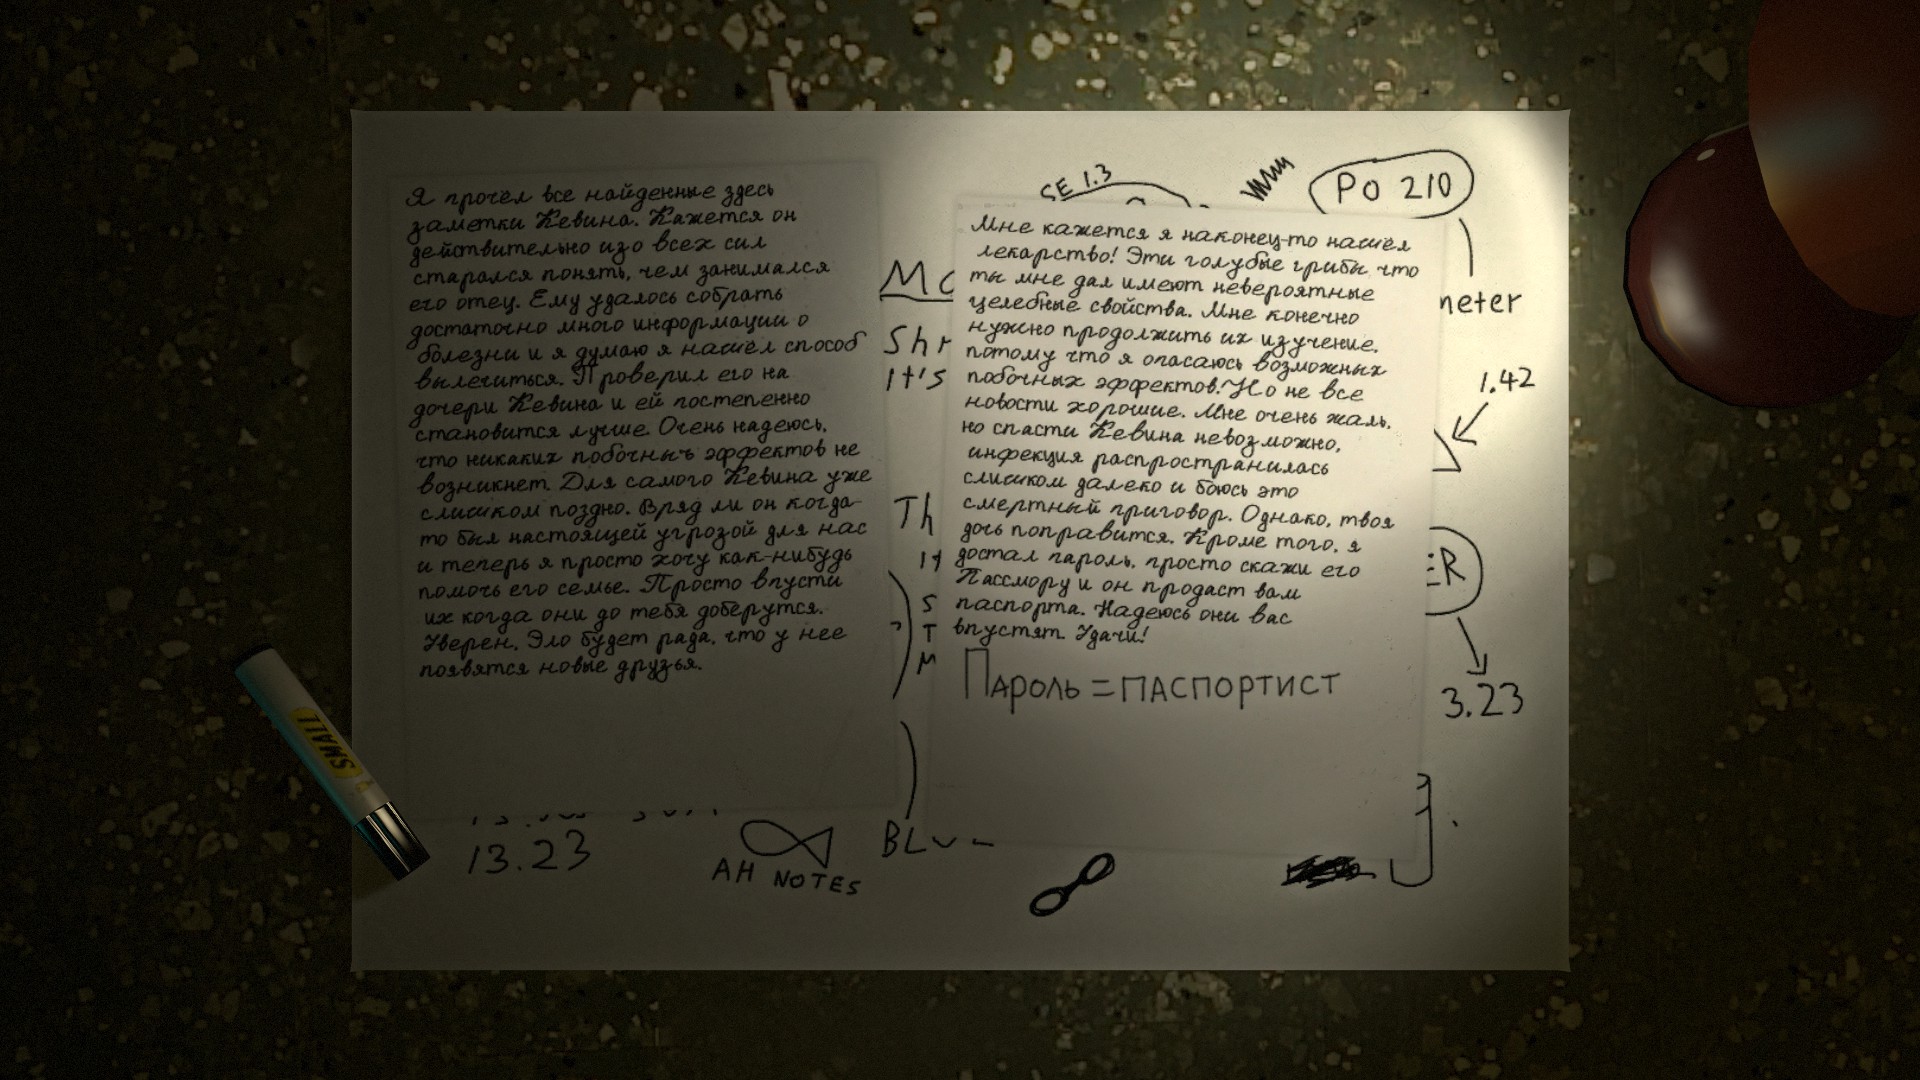 Я прочёл все найденные здесь
заметки Кевина. Кажется он
действительно изо всех сил
старался понять, чем занимался
его отец. Ему удалось собрать
достаточно много информации о
болезни и я думаю я нашёл способ
вылечиться. Проверил его на
дочери Кевина и ей постепенно
становится лучше. Очень надеюсь,
что никаких побочных эффектов не
возникнет. Для самого Кевина уже
слишком поздно. Вряд ли он когда-
то был настоящей угрозой для нас
и теперь я просто хочу как-нибудь
помочь его семье. Просто впусти
их когда они до тебя доберутся.
Уверен, Эло будет рада, что у нее
появятся новые друзья.
13.23
AH NOTES
Shr
It's
Th
It
S
T
M
SE 1.3
PO 210
Мне кажется я наконец-то нашёл
лекарство! Эти голубые грибы что
ты мне дал имеют невероятные
целебные свойства. Мне конечно
нужно продолжить их изучение,
потому что я опасаюсь возможных
побочных эффектов! Но не все
новости хорошие. Мне очень жаль,
но спасти Кевина невозможно,
инфекция распространилась
слишком далеко и боюсь это
смертный приговор. Однако, твоя
дочь поправится. Кроме того, я
достал пароль, просто скажи его
Пассмору и он продаст вам
паспорта. Надеюсь они вас
впустят. Удачи!
Пароль = ПАСПОРТИСТ
neter
1.42
ER
3.23
SMALL